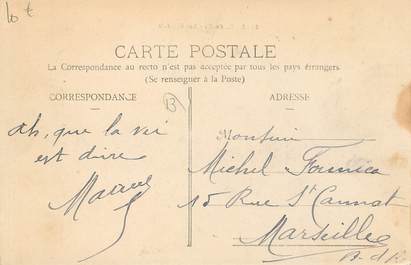 10 €
CARTE POSTALE
La Correspondance au recto n'est pas acceptée par tous les pays étrangers.
(Se renseigner à la Poste)
CORRESPONDANCE
ADRESSE
13
Ah, que la vie
est dure
Marcel
Monsieur
Michel Formica
15 Rue St Cannat
Marseille
B. d R.